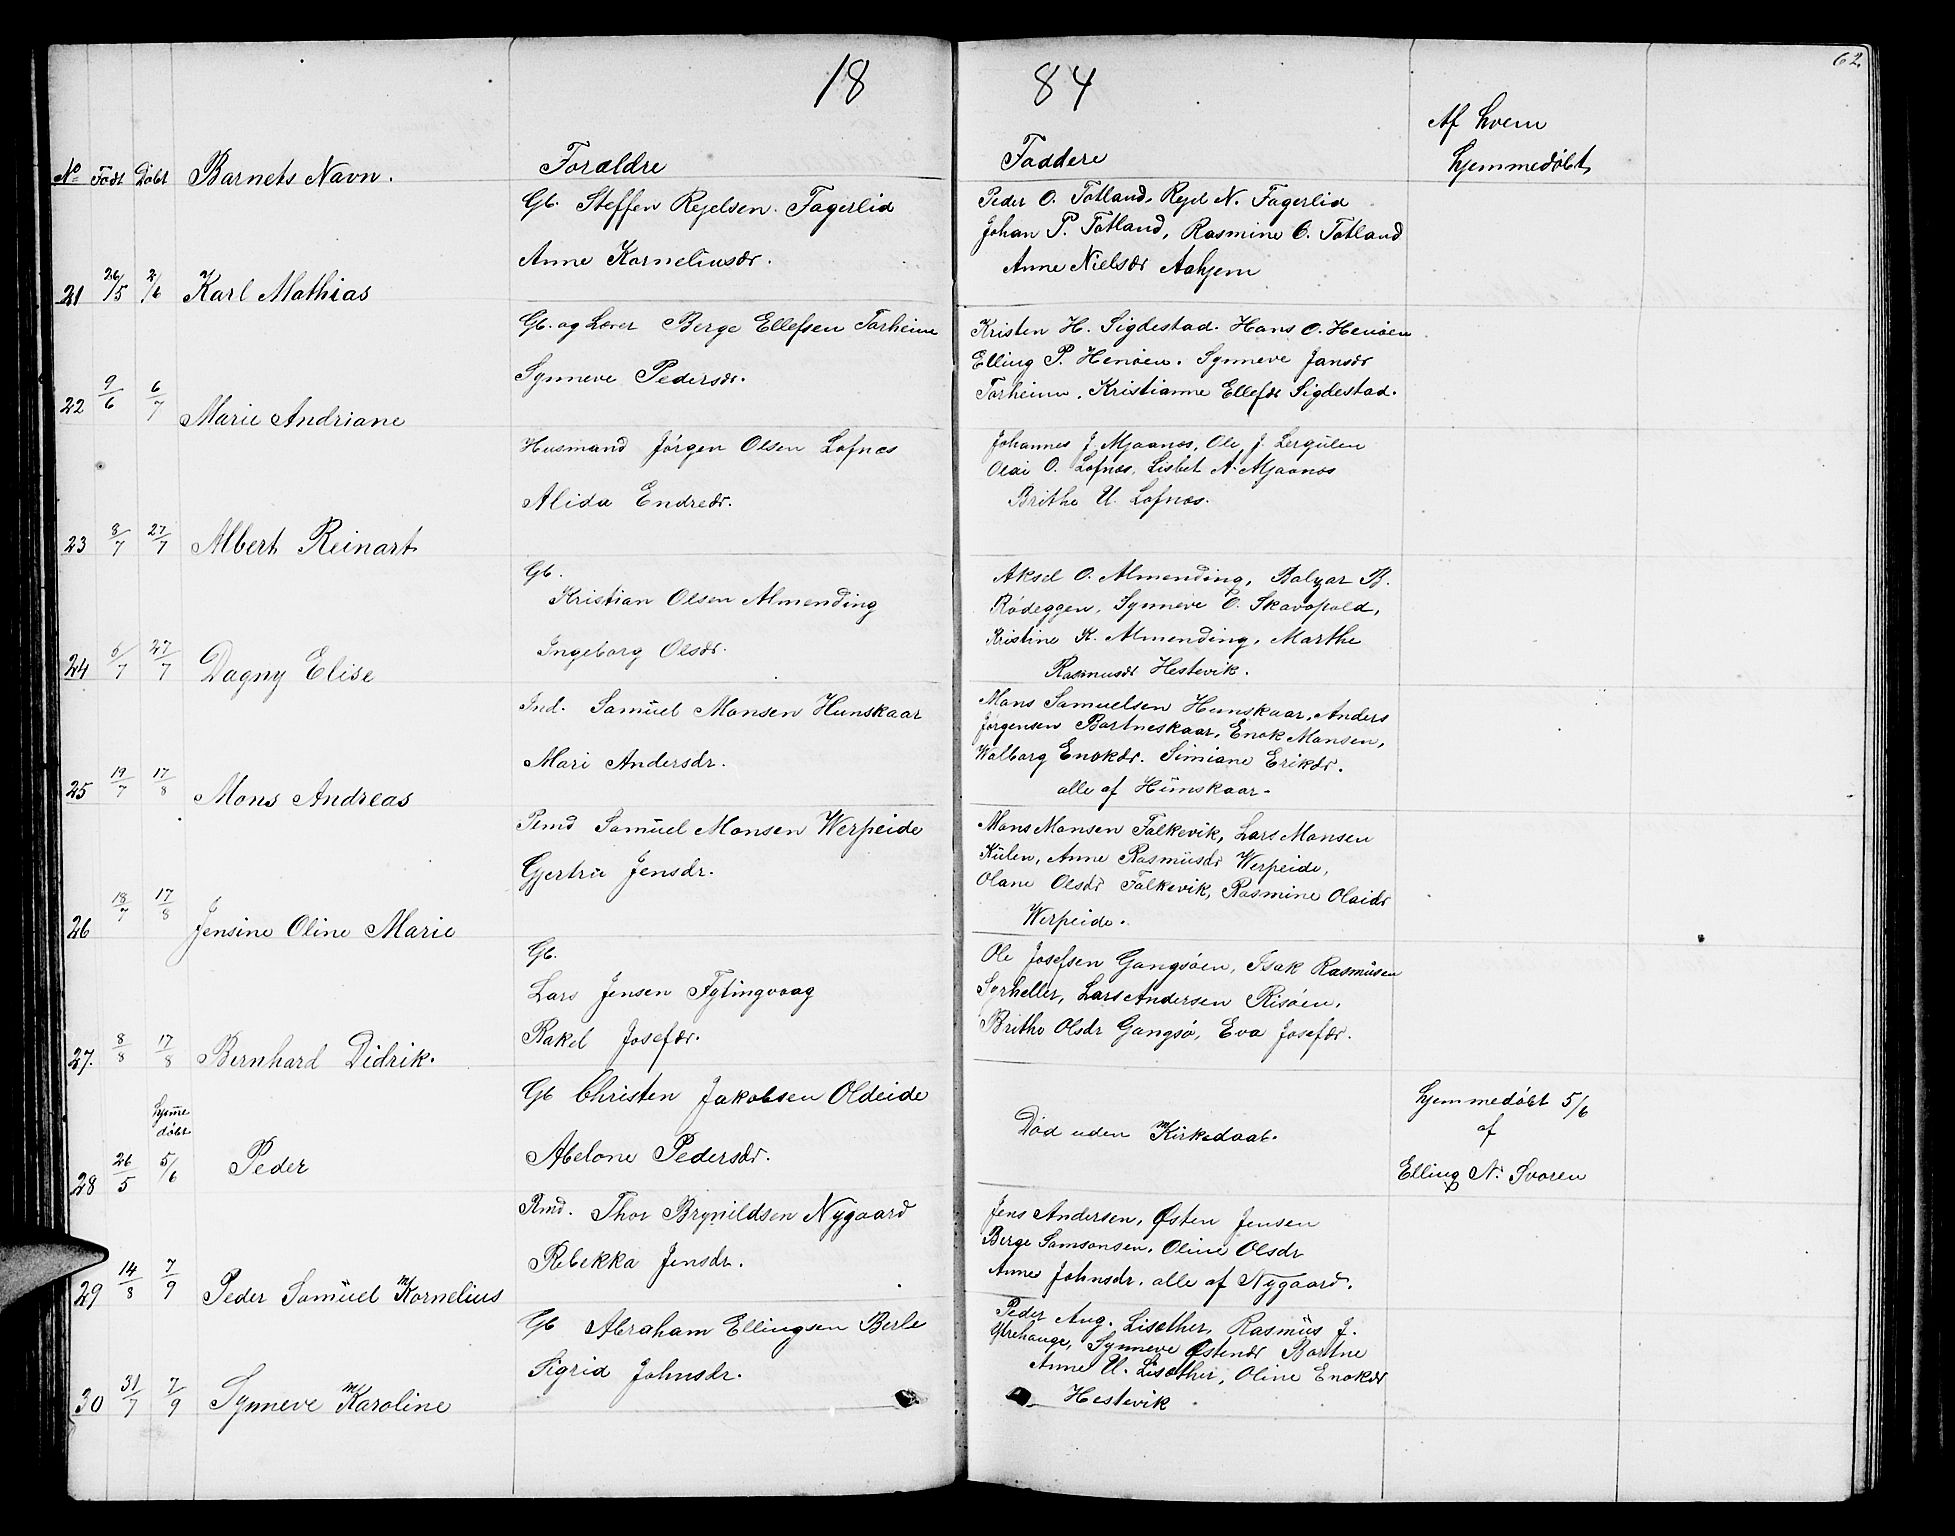 62.
18 84
No Födt Döbt Barnets Navn. Forældre Faddere Af hvem hjemmedöbt
21 26/5 2/6 Karl Mathias
Gb. Steffen Rejelsen Fagerlid
Anne Korneliusdr.
Peder O. Totland, Rejel N. Fagerlid
Johan P. Totland, Rasmine O. Totland
Anne Nielsdr Aahjem
22 9/6 6/7 Marie Andriane
Gb. og Lærer Berge Ellefsen Torheim
Synneve Pedersdr.
Kristen H. Sigdestad. Hans O. Henöen
Elling P. Henöen. Synneve Jansdr
Torheim. Kristianne Ellefdr Sigdestad.
23 8/7 27/7 Albert Reinart
Husmand Jörgen Olsen Lofnæs
Alida Endredr.
Johannes J. Mjaanæs, Ole J. Lergulen
Olai O. Lofnæs, Lisbet A. Mjaanæs
Brithe U. Lofnæs.
24 /7 27/7 Dagny Elise
Gb.
Kristian Olsen Almending
Ingeborg Olsdr.
Aksel O. Almending, Balzar B.
Rödeggen, Synneve O. Skavøpold,
Kristine K. Almending, Marthe
Rasmusdr Hestevik.
25 19/7 17/8 Mons Andreas
Ind. Samuel Monsen Hunskaar
Mari Andersdr.
Mons Samuelsen Hunskaar, Anders
Jörgensen Bortneskaar, Enok Monsen,
Walborg Enokdr. Simiane Erikdr.
alle af Hunskaar.
26 18/7 17/8 Jensine Oline Marie
Pmd Samuel Monsen Werpeide
Gjertru Jensdr.
Mons Monsen Falkevik, Lars Monsen
Kulen, Anne Rasmusdr Werpeide,
Olane Olsdr Falkevik, Rasmine Olaidr
Werpeide.
27. 8/8 17/8 Bernhard Didrik.
Gb.
Lars Jensen Fytingvaag
Rakel Josefdr.
Ole Josefsen Gangsöen, Isak Rasmusen
Sörheller, Lars Andersen Risöen,
Brithe Olsdr Gangsö, Eva Josefdr.
28 26/5 hjemme döbt 5/6 Peder
Gb Christen Jakobsen Oldeide
Abelone Pedersdr.
Död uden Kirkedaab.
hjemmedöbt 5/6
af
Elling N. Svoren
29 14/8 7/9 Peder Samuel Kornelius
Rmd. Thor Brynildsen Nygaard
Rebekka Jensdr.
Jens Andersen, Østen Jensen
Berge Samsonsen, Oline Olsdr
Anne Johnsdr. alle af Nygaard.
30 31/7 7/9 Synneve Karoline
Gb Abraham Ellingsen Berle
Sigrid Johnsdr.
Peder Aug. Lisæther, Rasmus J.
Ytrehauge, Synneve Østendr Bortne
Anne U. Lisæther, Oline Enokdr
Hestevik